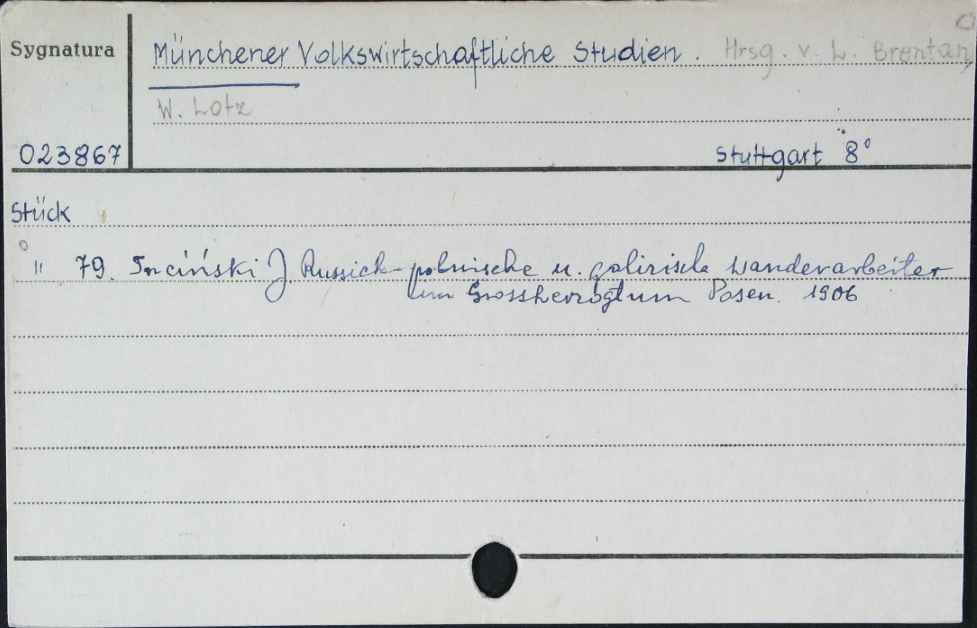 Sygnatura
Münchener Volkswirtschaftliche Studien. Hrsg. v. L. Brentano,
W. Lotz
023867
Stuttgart 8°
Stück
" 79. Trciński J Russisch-polnische u. galizische Wanderarbeiter
im Grossherzogtum Posen. 1906